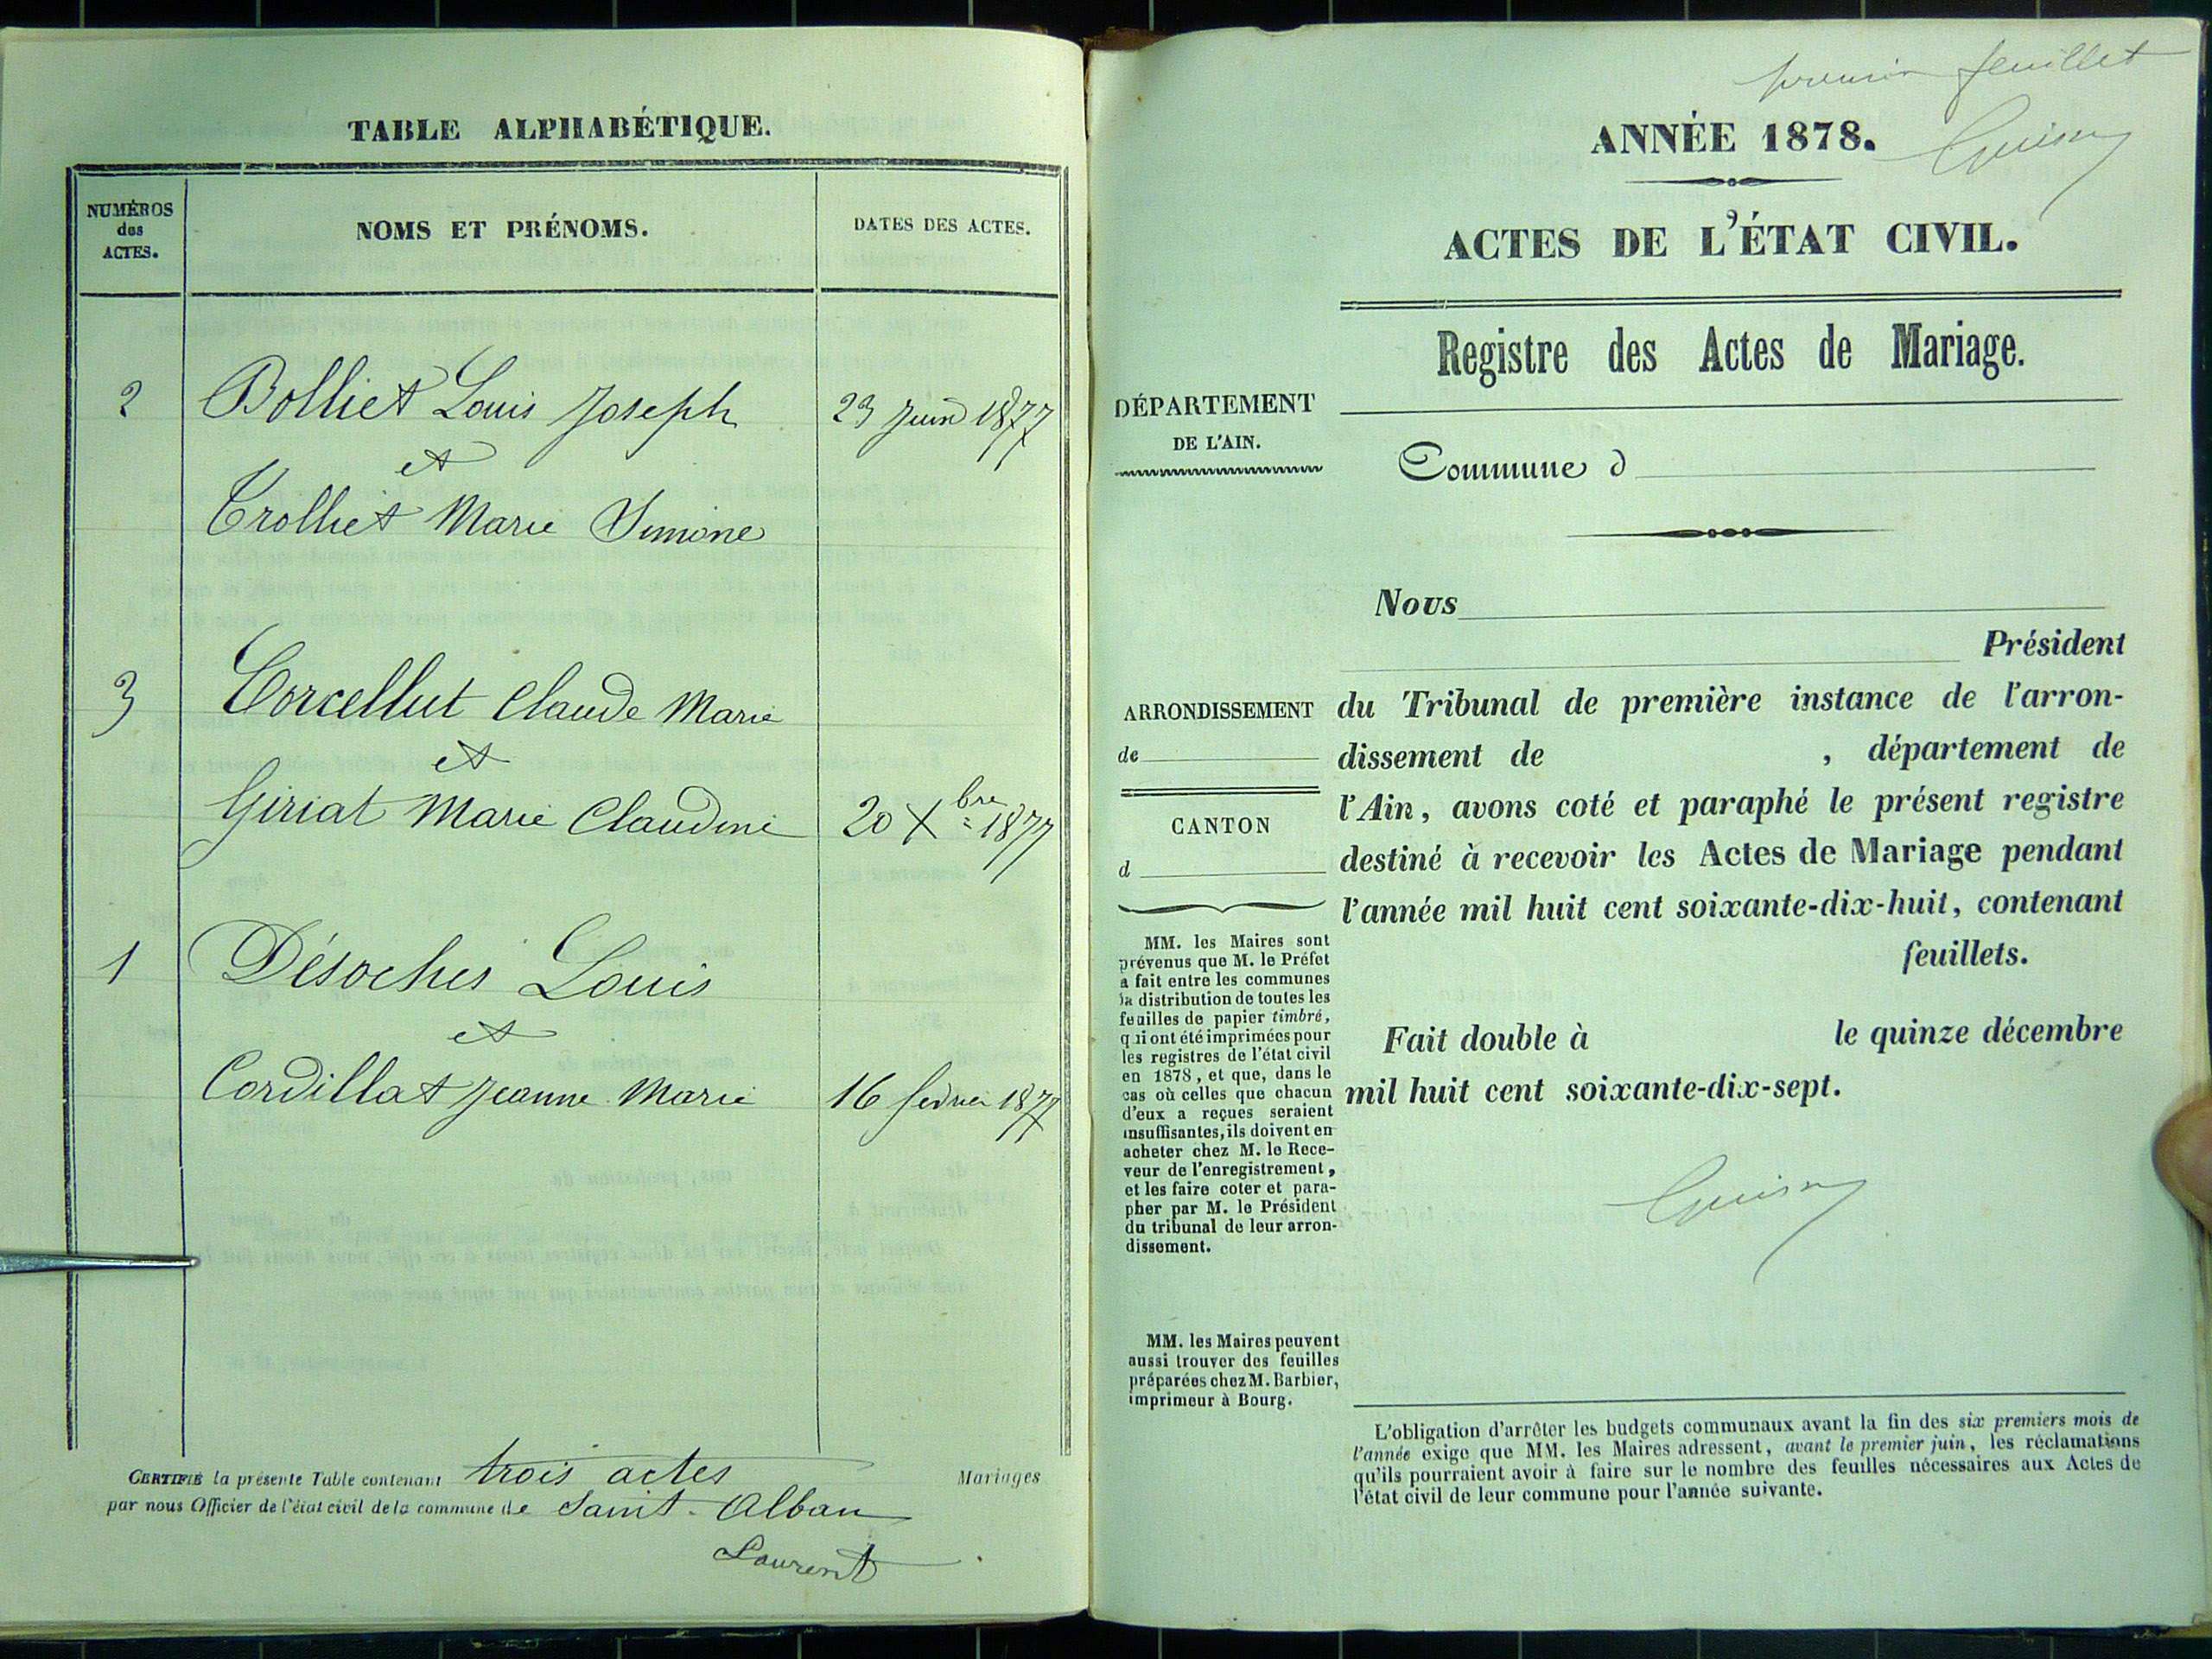 TABLE ALPHABÉTIQUE.
NUMÉROS
des
ACTES.
NOMS ET PRÉNOMS.
DATES DES ACTES.
2 Bolliet Louis Joseph 23 Juin 1877
et
Trolliet Marie Simone
3 Corcellut Claude Marie
et
Giriat Marie Claudine 20 Xbre 1877
1 Désoches Louis
et
Cordillat Jeanne Marie 16 février 1877
CERTIFIÉ la présente Table contenant trois actes Mariages
par nous Officier de l'état civil de la commune de Saint-Alban
Laurent
premier feuillet
ANNÉE 1878.
ACTES DE L'ÉTAT CIVIL.
Registre des Actes de Mariage.
DÉPARTEMENT
DE L'AIN.
Commune d
Nous
Président
ARRONDISSEMENT
de
CANTON
d
du Tribunal de première instance de l'arron-
dissement de , département de
l'Ain, avons coté et paraphé le présent registre
destiné à recevoir les Actes de Mariage pendant
l'année mil huit cent soixante-dix-huit, contenant
feuillets.
Fait double à le quinze décembre
mil huit cent soixante-dix-sept.
MM. les Maires sont
prévenus que M. le Préfet
a fait entre les communes
la distribution de toutes les
feuilles de papier timbré,
qui ont été imprimées pour
les registres de l'état civil
en 1878, et que, dans le
cas où celles que chacun
d'eux a reçues seraient
insuffisantes, ils doivent en
acheter chez M. le Rece-
veur de l'enregistrement,
et les faire coter et para-
pher par M. le Président
du tribunal de leur arron-
dissement.
MM. les Maires peuvent
aussi trouver des feuilles
préparées chez M. Barbier,
imprimeur à Bourg.
L'obligation d'arrêter les budgets communaux avant la fin des six premiers mois de
l'année exige que MM. les Maires adressent, avant le premier juin, les réclamations
qu'ils pourraient avoir à faire sur le nombre des feuilles nécessaires aux Actes de
l'état civil de leur commune pour l'année suivante.